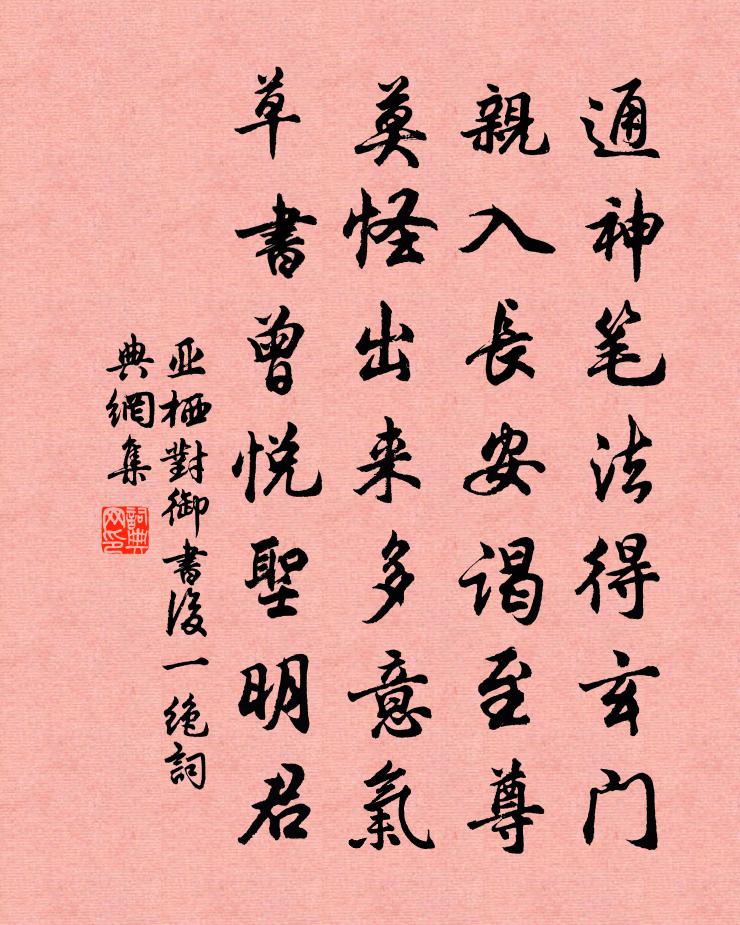 通神笔法得玄门
親入長安谒至尊
莫怪出来多意氣
草書曾悦聖明君
亚栖對御書後一绝詞
典網集
詞典
网印